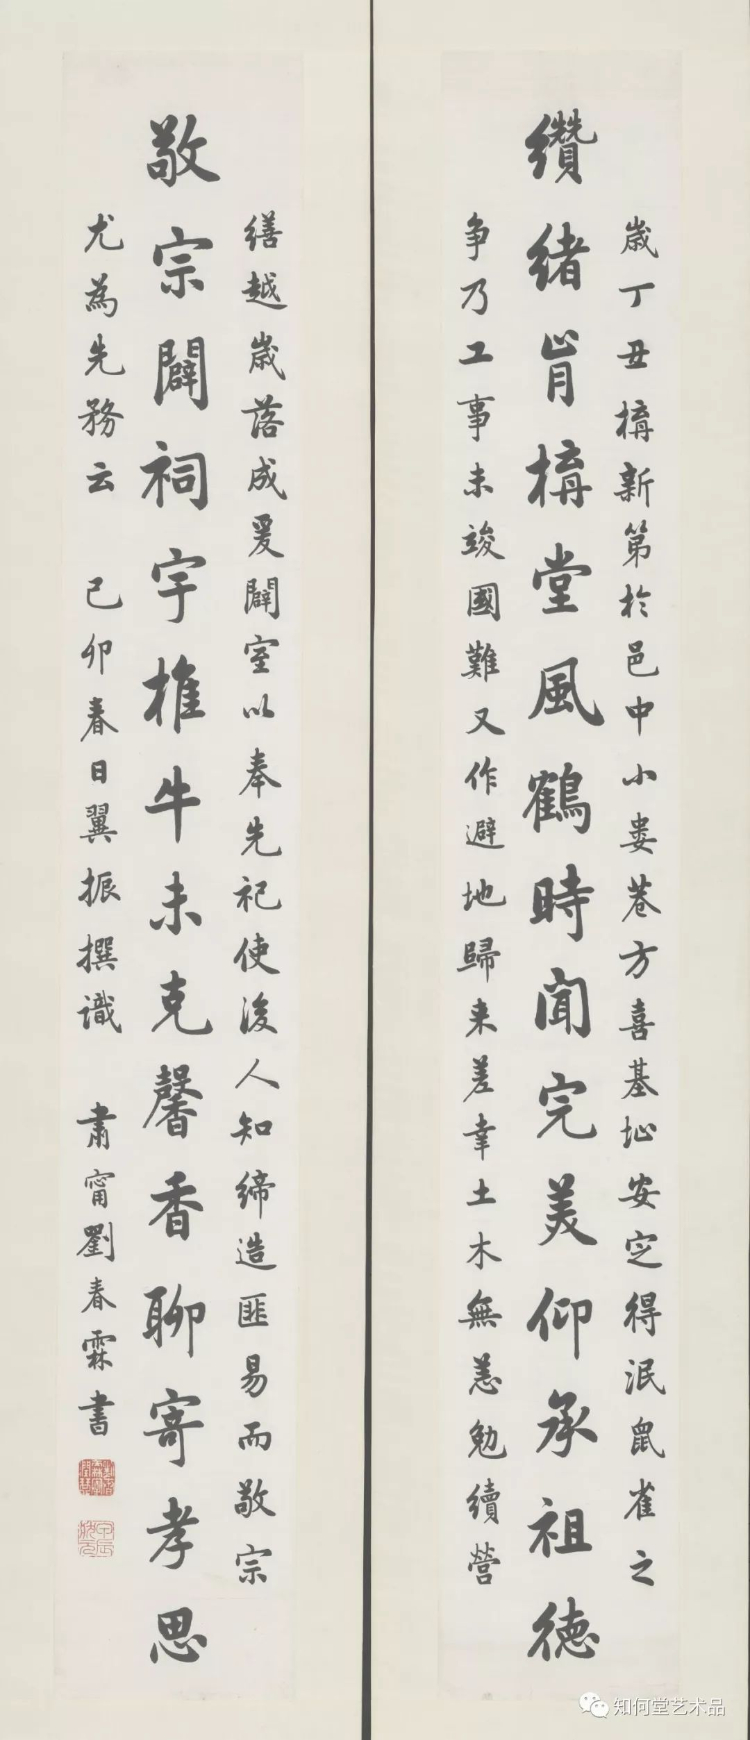 纘緒肯構堂風鶴時聞完美仰承祖德
歲丁丑構新第於邑中小婁巷方喜基址安定得泯鼠雀之
争乃工事未竣國難又作避地歸来差幸土木無恙勉續營
敬宗闢祠宇椎牛未克馨香聊寄孝思
缮越歲落成爰闢室以奉先祀使後人知締造匪易而敬宗
尤為先務云 己卯春日翼振撰識 肅甯劉春霖書
知何堂艺术品